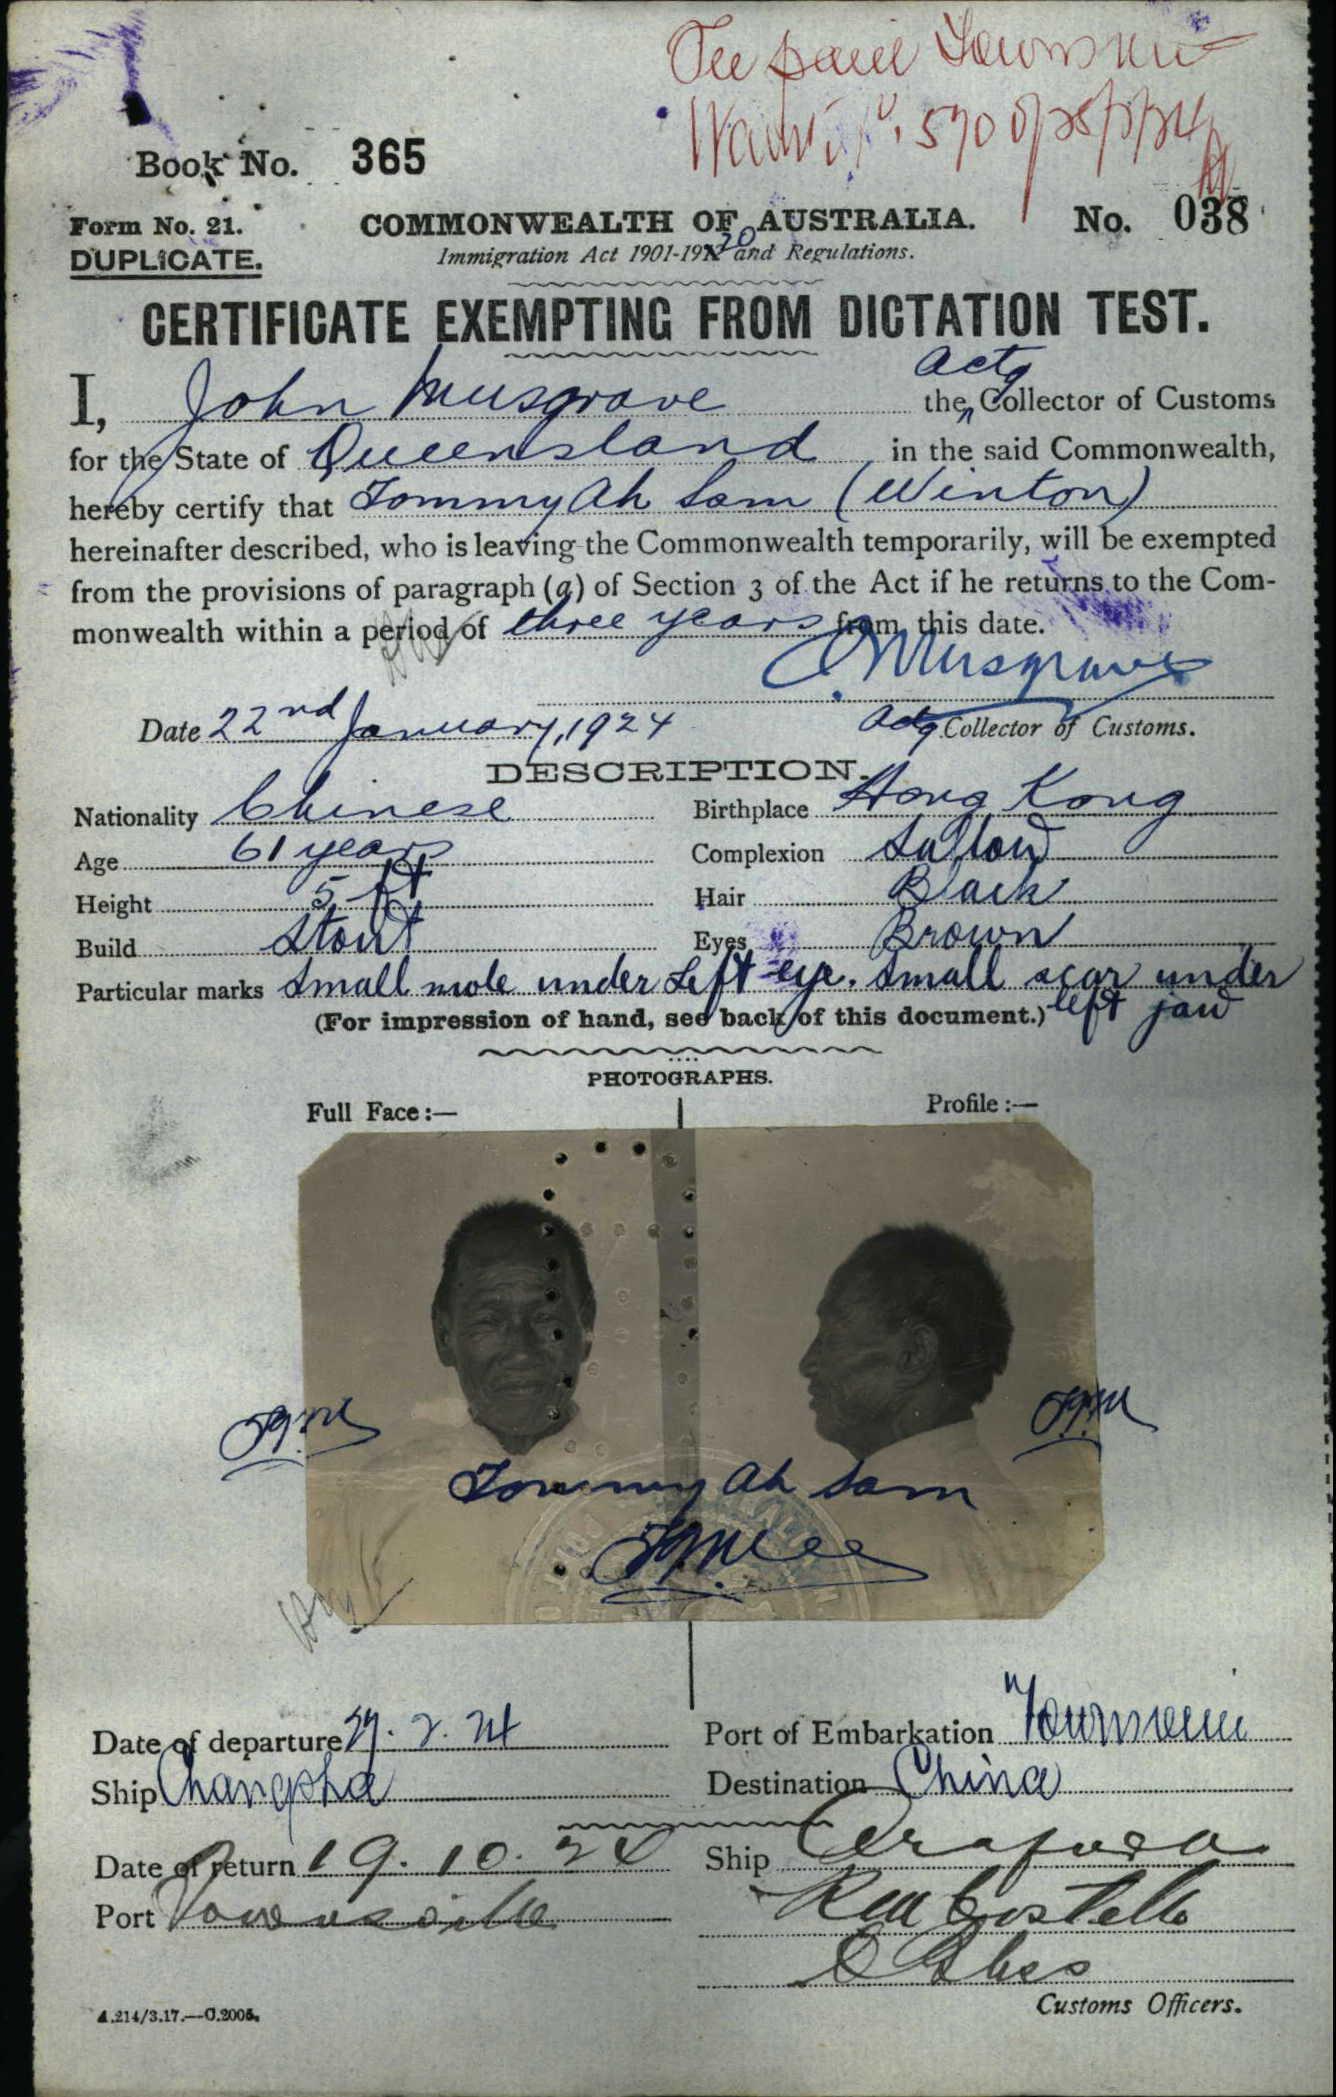 Book No. 365
Form No. 21.
COMMONWEALTH OF AUSTRALIA.
No. 038
DUPLICATE.
Immigration Act 1901-1920 and Regulations.
CERTIFICATE EXEMPTING FROM DICTATION TEST.
I, John Musgrave the Actg Collector of Customs
for the State of Queensland in the said Commonwealth,
hereby certify that Tommy Ah Sam (Winton)
hereinafter described, who is leaving the Commonwealth temporarily, will be exempted
from the provisions of paragraph (a) of Section 3 of the Act if he returns to the Com-
monwealth within a period of three years from this date.
Musgrave
Date 22nd January, 1924
Actg Collector of Customs.
DESCRIPTION.
Nationality Chinese
Birthplace Hong Kong
Age 61 years
Complexion Sallow
Height 5 ft
Hair Black
Build Stout
Eyes Brown
Particular marks Small mole under Left eye. Small scar under
left jaw
(For impression of hand, see back of this document.)
PHOTOGRAPHS.
Full Face:—
Profile:—
Tommy Ah Sam
Date of departure 27. 2. 24
Port of Embarkation Townsville
Ship Changsha
Destination China
Date of return 19. 10. 24
Ship Arafura
Port Townsville
Costello
Customs Officers.
A.214/3.17.—C.2005.